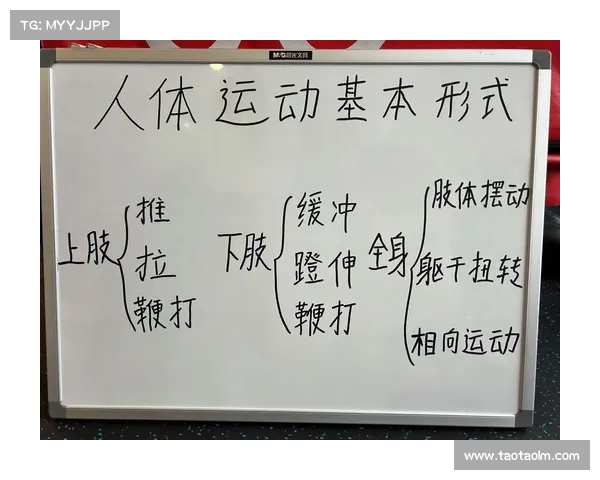 TG: MYYJJPP
M&G晨光文具
人体运动基本形式
上肢{推
拉
鞭打
下肢{缓冲
蹬伸
鞭打
全身{肢体摆动
躯干扭转
相向运动
www.taotaolm.com